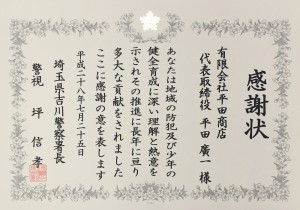 感謝状
有限会社平田商店
代表取締役 平田 廣一 様
あなたは地域の防犯及び少年の
健全育成に深い理解と熱意を
示されその推進に長年に亘り
多大な貢献をされました
ここに感謝の意を表します
平成二十八年七月二十五日
埼玉県吉川警察署長
警視 坪 信孝